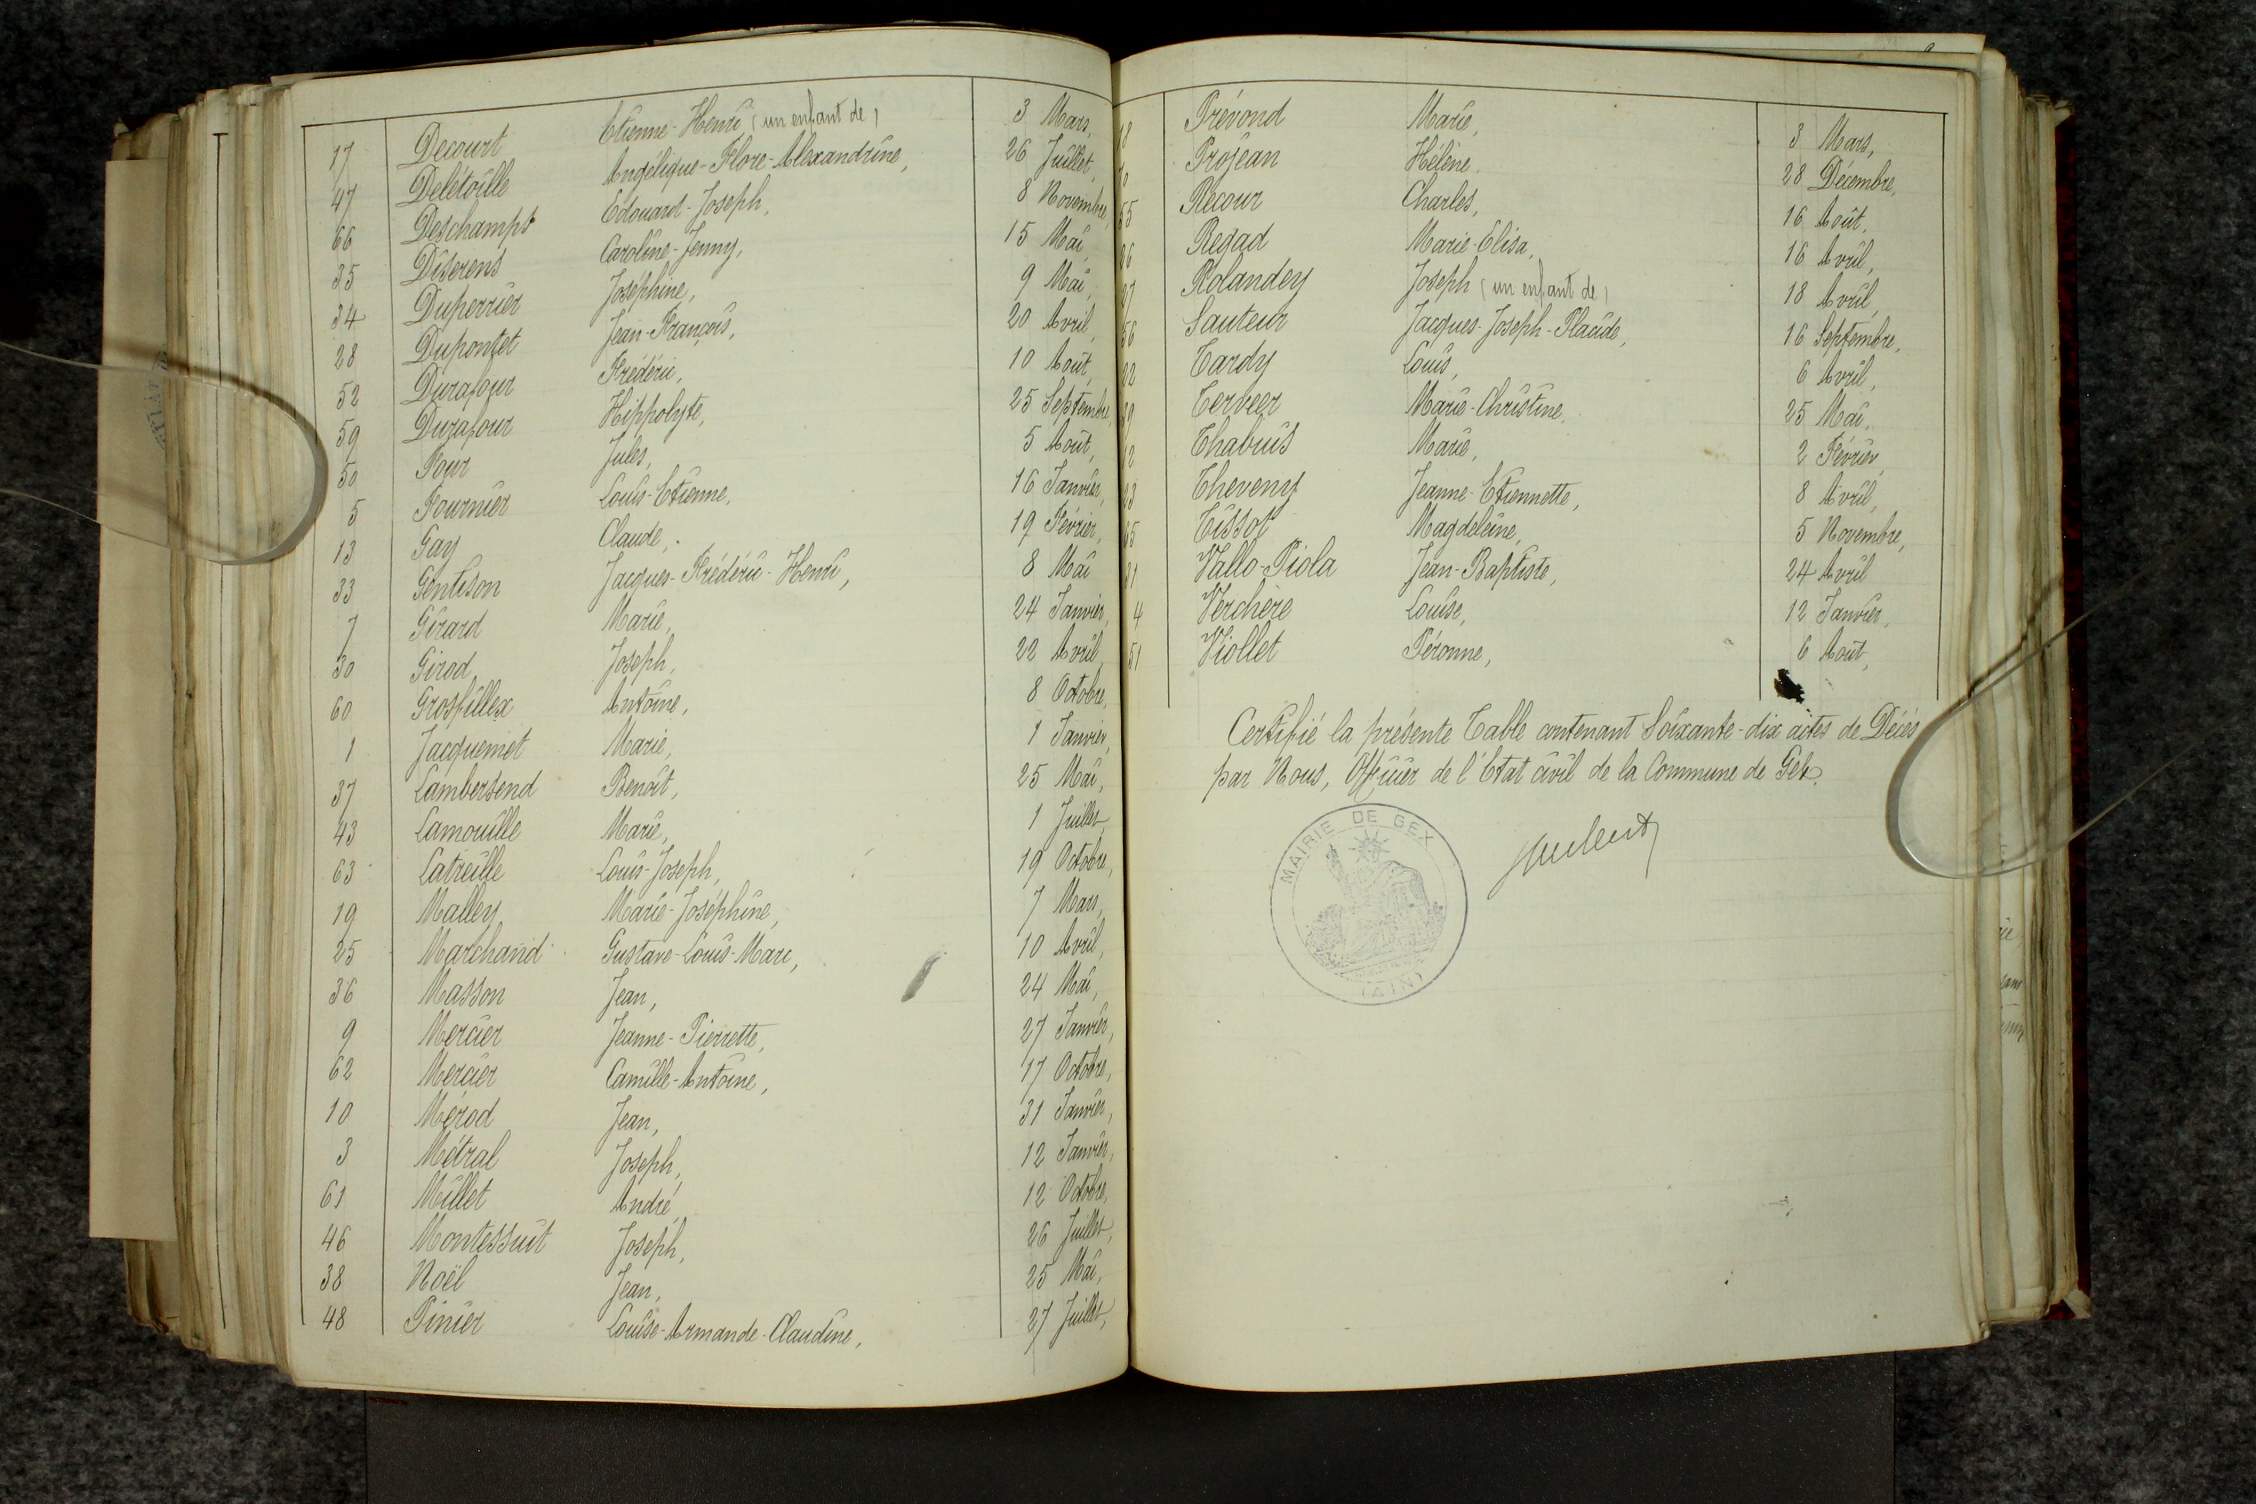 17 Decourt Etienne-Henri (un enfant de) 3 Mars,
47 Delétoille Angélique-Flore-Alexandrine, 26 Juillet,
66 Deschamps Edouard-Joseph, 8 Novembre,
35 Diserens Caroline-Jenny, 15 Mai,
34 Duperrier Joséphine, 9 Mai,
28 Dupontet Jean-François, 20 Avril,
52 Durafour Frédéric, 10 Août,
59 Durafour Hippolyte, 25 Septembre,
50 Four Jules, 5 Août,
5 Fournier Louis-Etienne, 16 Janvier,
13 Gay Claude, 19 Février,
33 Gentison Jacques-Frédéric-Henri, 8 Mai
7 Girard Marie, 24 Janvier,
30 Girod Joseph, 22 Avril,
60 Grosfillex Antoine, 8 Octobre,
1 Jacquemet Marie, 1 Janvier,
37 Lambersend Benoît, 25 Mai,
43 Lamouille Marie, 1 Juillet,
63 Latreille Louis-Joseph, 19 Octobre,
19 Malley Marie-Joséphine, 7 Mars,
25 Marchand Gustave-Louis-Marc, 10 Avril,
36 Masson Jean, 24 Mai,
9 Mercier Jeanne-Pierrette, 27 Janvier,
62 Mercier Camille-Antoine, 17 Octobre,
10 Mérod Jean, 31 Janvier,
3 Métral Joseph, 12 Janvier,
61 Millet André, 12 Octobre,
46 Montessuit Joseph, 26 Juillet,
38 Noël Jean, 25 Mai,
48 Pinier Louise-Armande-Claudine, 27 Juillet,
18 Prévond Marie, 3 Mars,
70 Projean Hélène. 28 Décembre,
55 Recour Charles, 16 Août,
26 Regad Marie-Elisa, 16 Avril,
27 Rolandey Joseph (un enfant de) 18 Avril,
56 Sauteur Jacques-Joseph-Placide, 16 Septembre,
22 Tardy Louis, 6 Avril,
39 Terveer Marie-Christine. 25 Mai,
12 Thabuis Marie, 2 Février,
23 Theveny Jeanne-Etiennette, 8 Avril,
65 Tissot Magdeleine, 5 Novembre,
31 Vallo-Piola Jean-Baptiste, 24 Avril
4 Verchère Louise, 12 Janvier,
51 Viollet Péronne, 6 Août,
Certifié la présente Table contenant Soixante-dix actes de Décès
par Nous, Officier de l'Etat civil de la Commune de Gex.
MAIRIE DE GEX
(AIN)